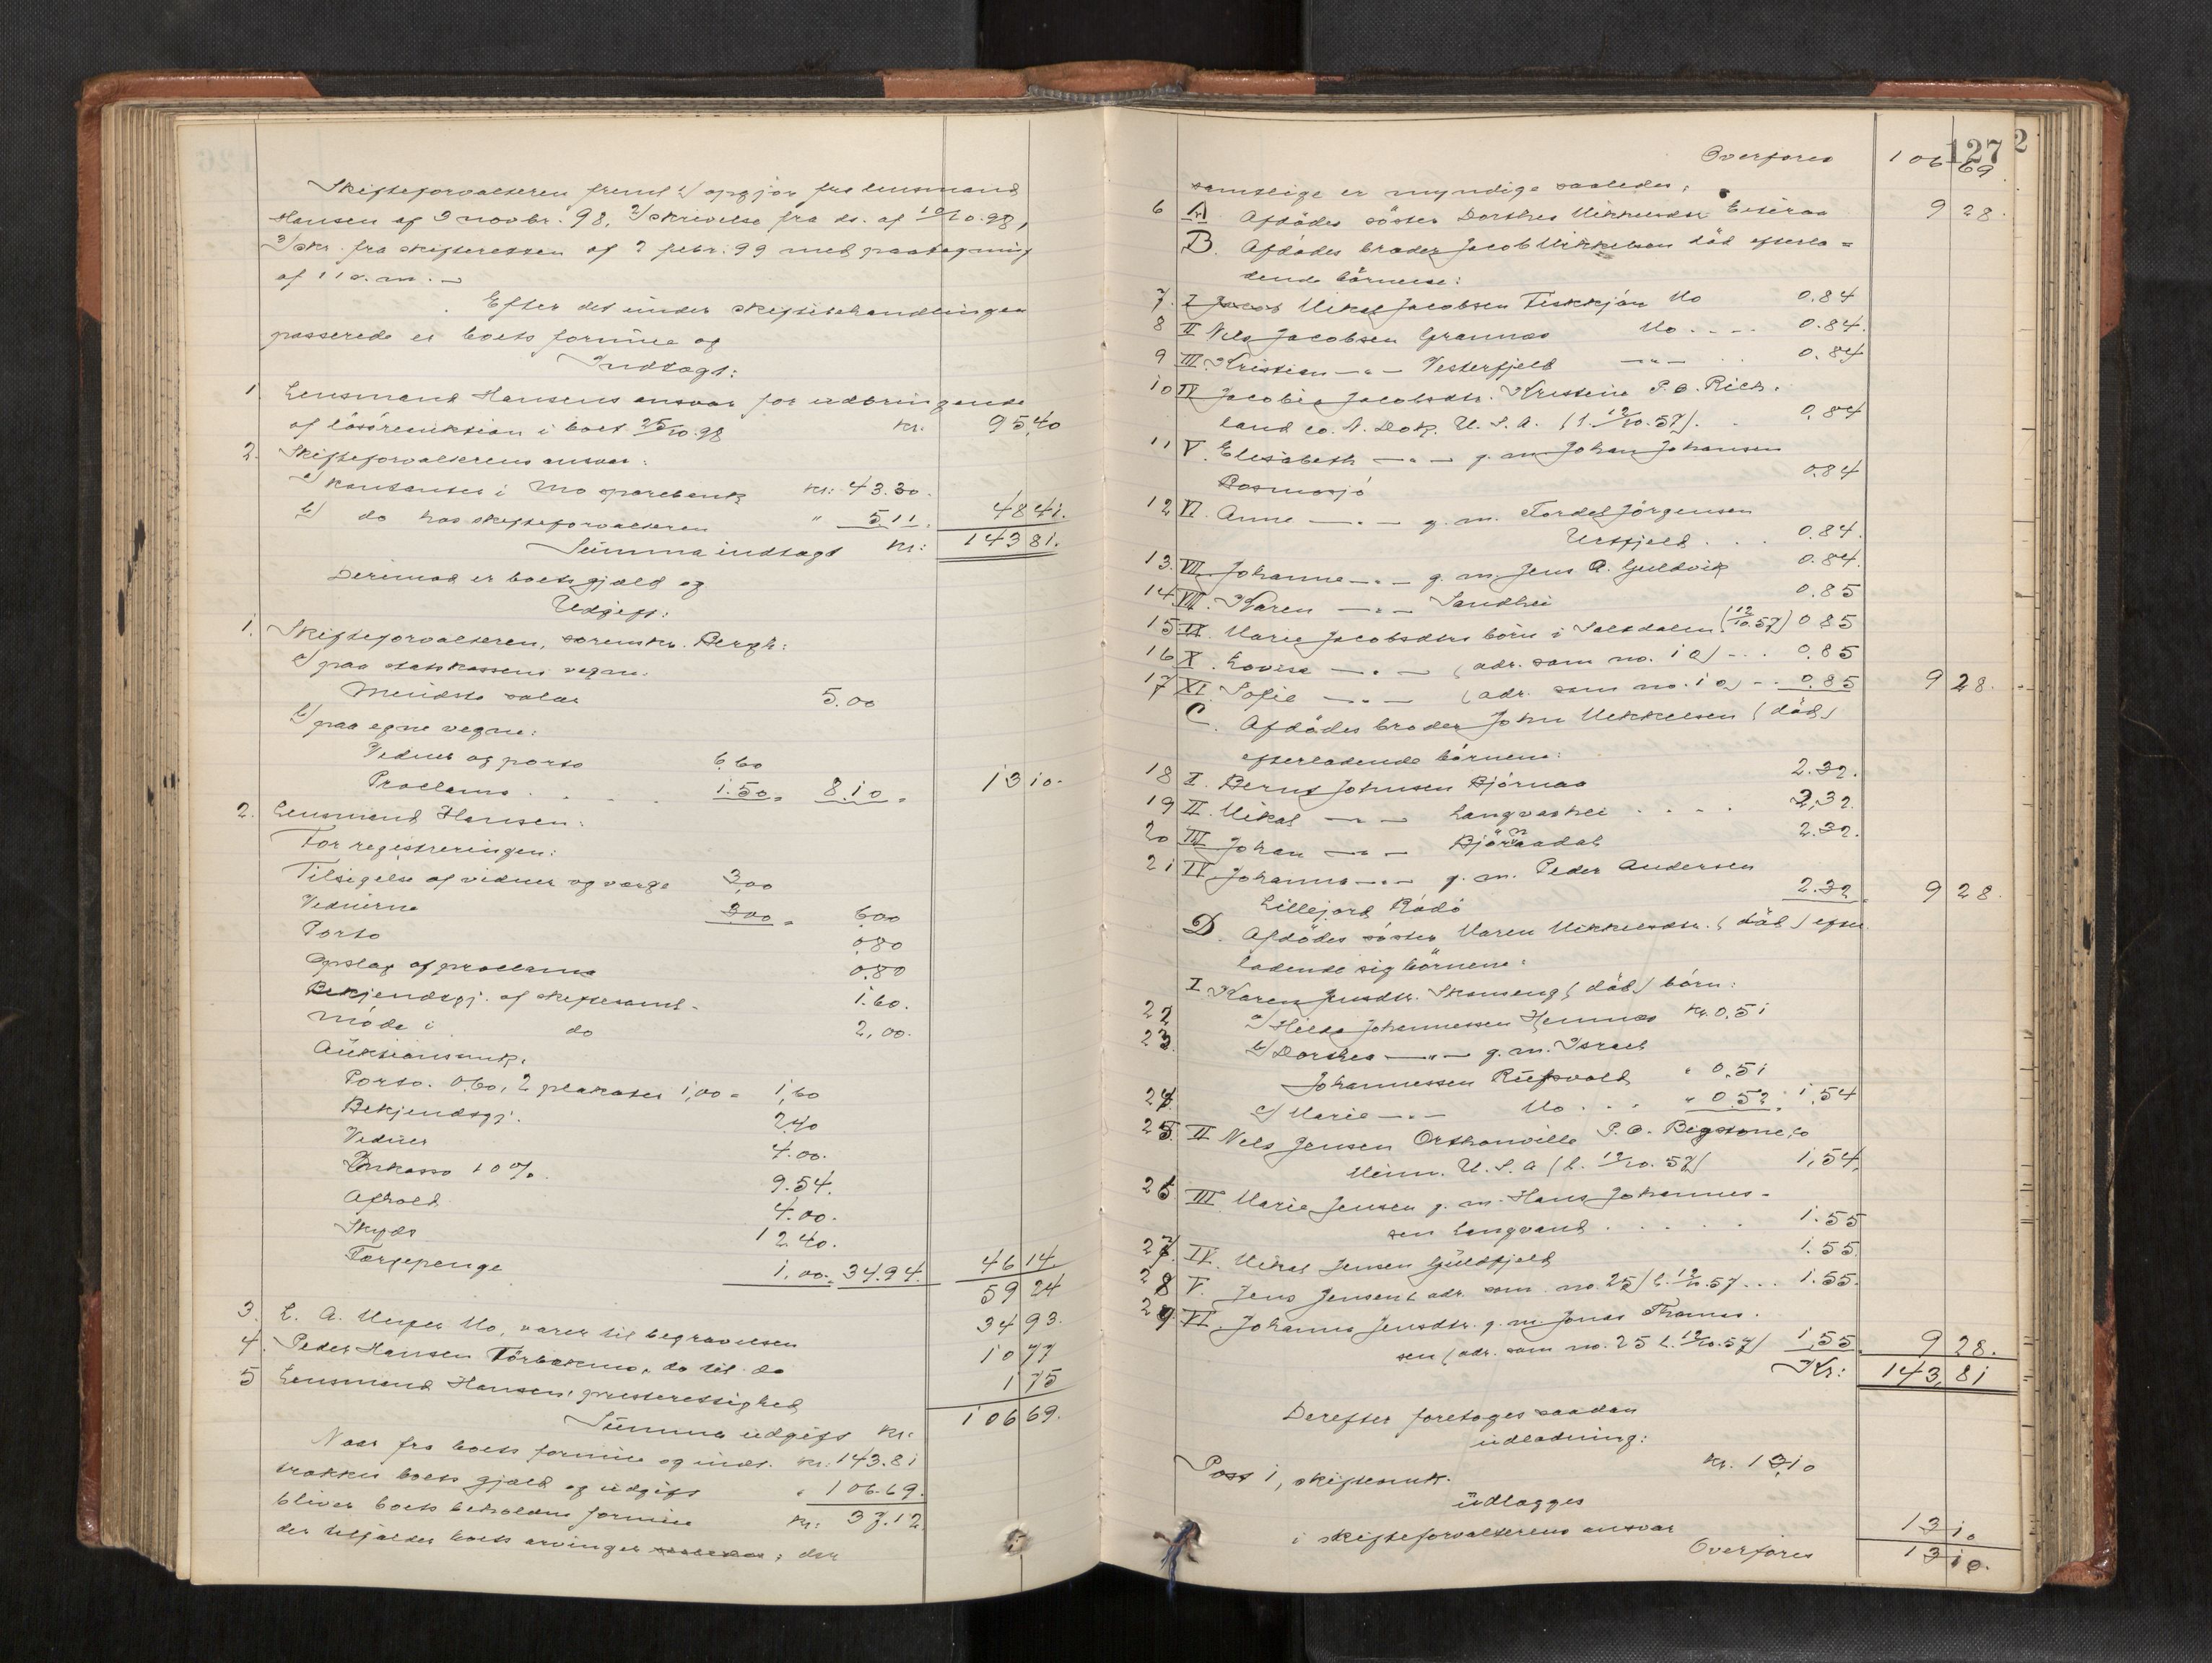 Skifteforvalteren freml 1/ opgjør fra lensmand
Hansen af 9 novbr. 98, 2/ skrivelse fra ds. af 19/10.98,
3/ skr. fra skifteretten af 2 febr. 99 med paategning
af 11 s.m. –
Efter det under skiftebehandlingen
passerede er boets formue og
Indtægt:
1. Lensmand Hansens ansvar for udbringende
af løsøreauktion i boet 25/10.98 kr. 95,40
2. Skifteforvalterens ansvar:
a/ kontanter i Mo sparebank kr: 43.30.
b/ do hos skifteforvalteren " 5.11. 48 41.
Summa indtægt kr: 143 81.
Derimod er boets gjæld og
Udgift:
1. Skifteforvalteren, sorenskr. Bergh:
a/ paa statskassens vegne:
Mindste salær 5.00
b/ paa egne vegne:
Vidner og porto 6.60
Proclama . . . . 1.50 = 8.10 = 13 10.
2. Lensmand Hansen:
For registreringen:
Tilsigelse af vidner og værge 3,00
Vidnerne 3,00 = 6,00
Porto 0,80
Opslag af proclama 0,80
Bekjendtgj. af skiftesaml. 1.60.
Møde i do 2,00.
Auktionsomk.
Porto. 0,60, 2 plakater 1,00 = 1,60
Bekjendtgj. 2,40
Vidner 4.00.
Inkasso 10 % 9.54.
Afhold 4.00.
Skyds 12.40.
Tærepenge 1,00. 34.94. 46 14.
59 24
3. L. A. Meyer Mo, varer til begravelsen 34 93.
4. Peder Hansen Tørbækmo, do til do 10 77
5 Lensmand Hansen, presterettighed 1 75
Summa udgift kr: 106 69.
Naar fra boets formue og indt. kr: 143.81
trækkes boets gjæld og udgift " 106.69.
bliver boets beholdne formue kr: 37.12
der tilfalder boets arvinger saaledes; der
127
2
Overføres 106 69
samtlige er myndige saaledes:
6 A. Afdødes søster Dorthea Mikkelsdtr. 9 28.
B. Afdødes broder Jacob Mikkelsen død efterla=
dende børnene:
7. I Jacob Mikal Jacobsen Fiskkjøn Mo 0.84
8 II Nels Jacobsen Grannæs Mo . . . . 0.84.
9 III. Kristian – " – Vesterfjeld – " – . . 0.84
10 IV Jacobia Jacobsdtr. Kristine P.O. Rich.
land co. N. Dak. U.S.A. (l. 12/10.57). . 0,84
11 V. Elisabeth – " – g.m. Johan Johansen
Rosmosjø 0.84
12 VI. Anne – " – g. m. Tordel Jørgensen
Urtfjeld . . . 0.84.
13. VII. Johanna – " – g. m. Jens A. Guldvik 0.84.
14 VIII. Karen – " – Sandhei 0.85
15 IX. Marie Jacobsdtrs børn i Saltdalen (12/10.57) 0 85
16 X. Lovise – " – (adr. som no. 10) – . . 0.85
17 XI. Sofie – " – (adr. som no. 10) – . . 0.85 9 28.
C. Afdødes broder John Mikkelsen (død)
efterladende børnene:
18 I. Bernt Johnsen Bjørnaa 2.32.
19 II. Mikal – " – Langvashei . . . . 2,32.
20 III Johan – " – Bjørnaadal 2.32.
21 IV Johanna – " – g. m. Peder Andersen
Lillejord Rødø 2.32. 9 28.
D. Afdødes søster Maren Mikkelsdtr. (død) efter
ladende sig børnene:
I Karen Jensdtr. Skamseng (død) børn:
22 a/ Hilda Johannessen Hemnæs Kr. 0.51
23. b/ Dorthea – " – g. m. Israel
Johannessen Rufsvold " 0.51
24. c/ Marie – " – Mo . . . " 0.52. 1.54
25. II Nels Jensen Orthonville P.O. Bigstone, co
Minn. U.S.A (l. 12/10.57) 1,54.
26 III. Marie Jensen g. m. Hans Johannes-
sen Langvand . . . . . 1.55
27 IV. Mikal Jensen Guldfjeld 1.55.
28 V. Jens Jensen (adr. som no. 25) l. 12/10.57 . . . 1.55.
29 VI. Johanna Jensdtr. g. m. Jonas Thomas.
sen (adr. som no. 25 l. 12/10.57) 1,55. 9 28.
Kr: 143,81
Derefter foretages saadan
udlodning:
Post 1, skifteomk. kr. 13,10
udlægges
i skifteforvalterens ansvar 13 10
Overføres 13 10.